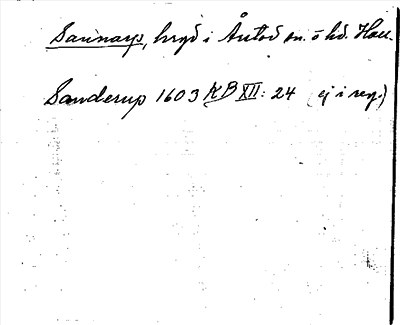 Sannarp, hrgd i Årstad sn. o hd. Hall.
Sanderup 1603 KB XII: 24 (ej i reg.)